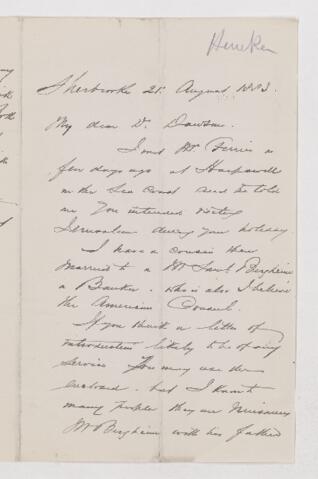 Heneker
Sherbrooke 21st August 1883.
My dear Dr. Dawson.
I met Mr Ferrier a
few days ago at Harpswell
on the Sea Coast and he told
me You intended visiting
Jerusalem during your holiday
I have a cousin there
married to a Mr Saml Bergheim
a Banker. who is also I believe
the American Consul.
If you think a letter of
introduction likely to be of any
service You may use the
enclosed. but I know
many people they are
Mr Bergheim with his father